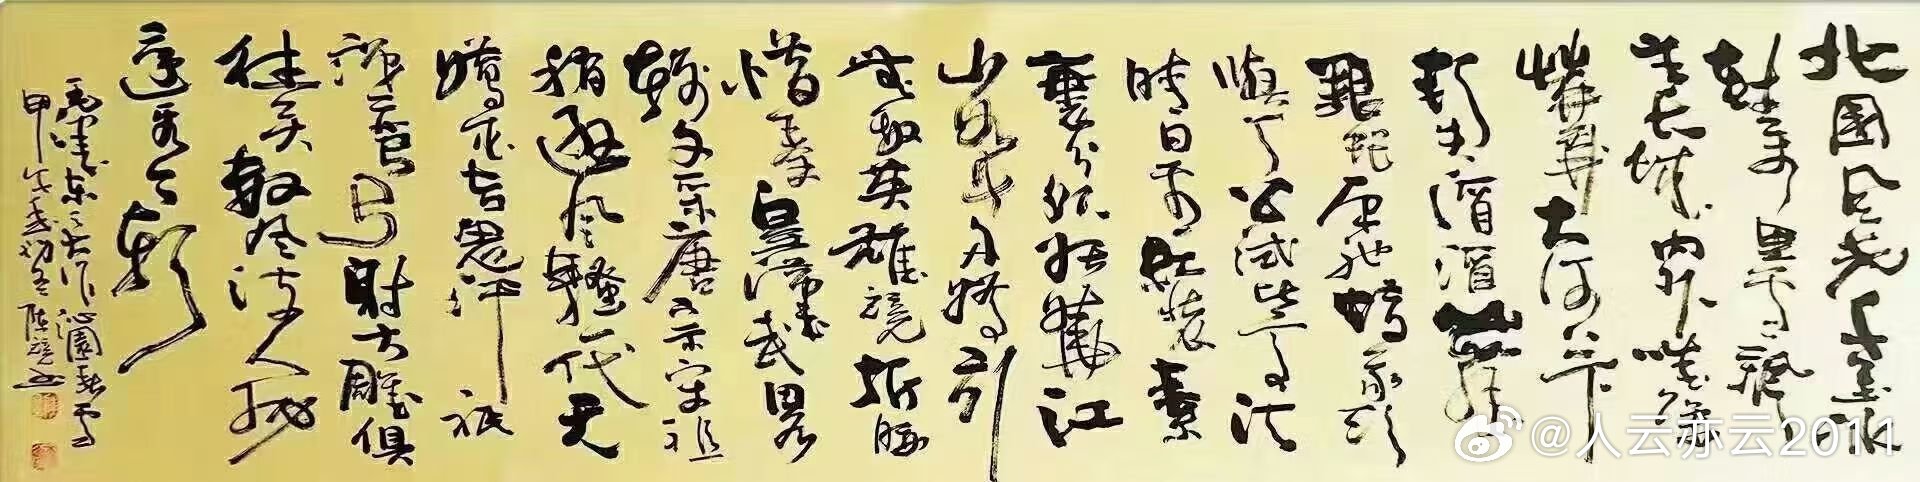 北國風光千里冰
封萬里雪飄望
長城內外惟餘
莽莽大河上下
頓失滔滔山舞
銀蛇原馳蠟象欲
與天公試比高須
晴日看紅裝素
裹分外妖嬈江
山如此多嬌引
無數英雄競折腰
惜秦皇漢武略
輸文采唐宗宋祖
稍遜風騷一代天
驕成吉思汗祇
識彎弓射大雕俱
往矣數風流人物
還看今朝
毛澤東之大作沁園春雪
甲午年初冬陳
@人云亦云2011